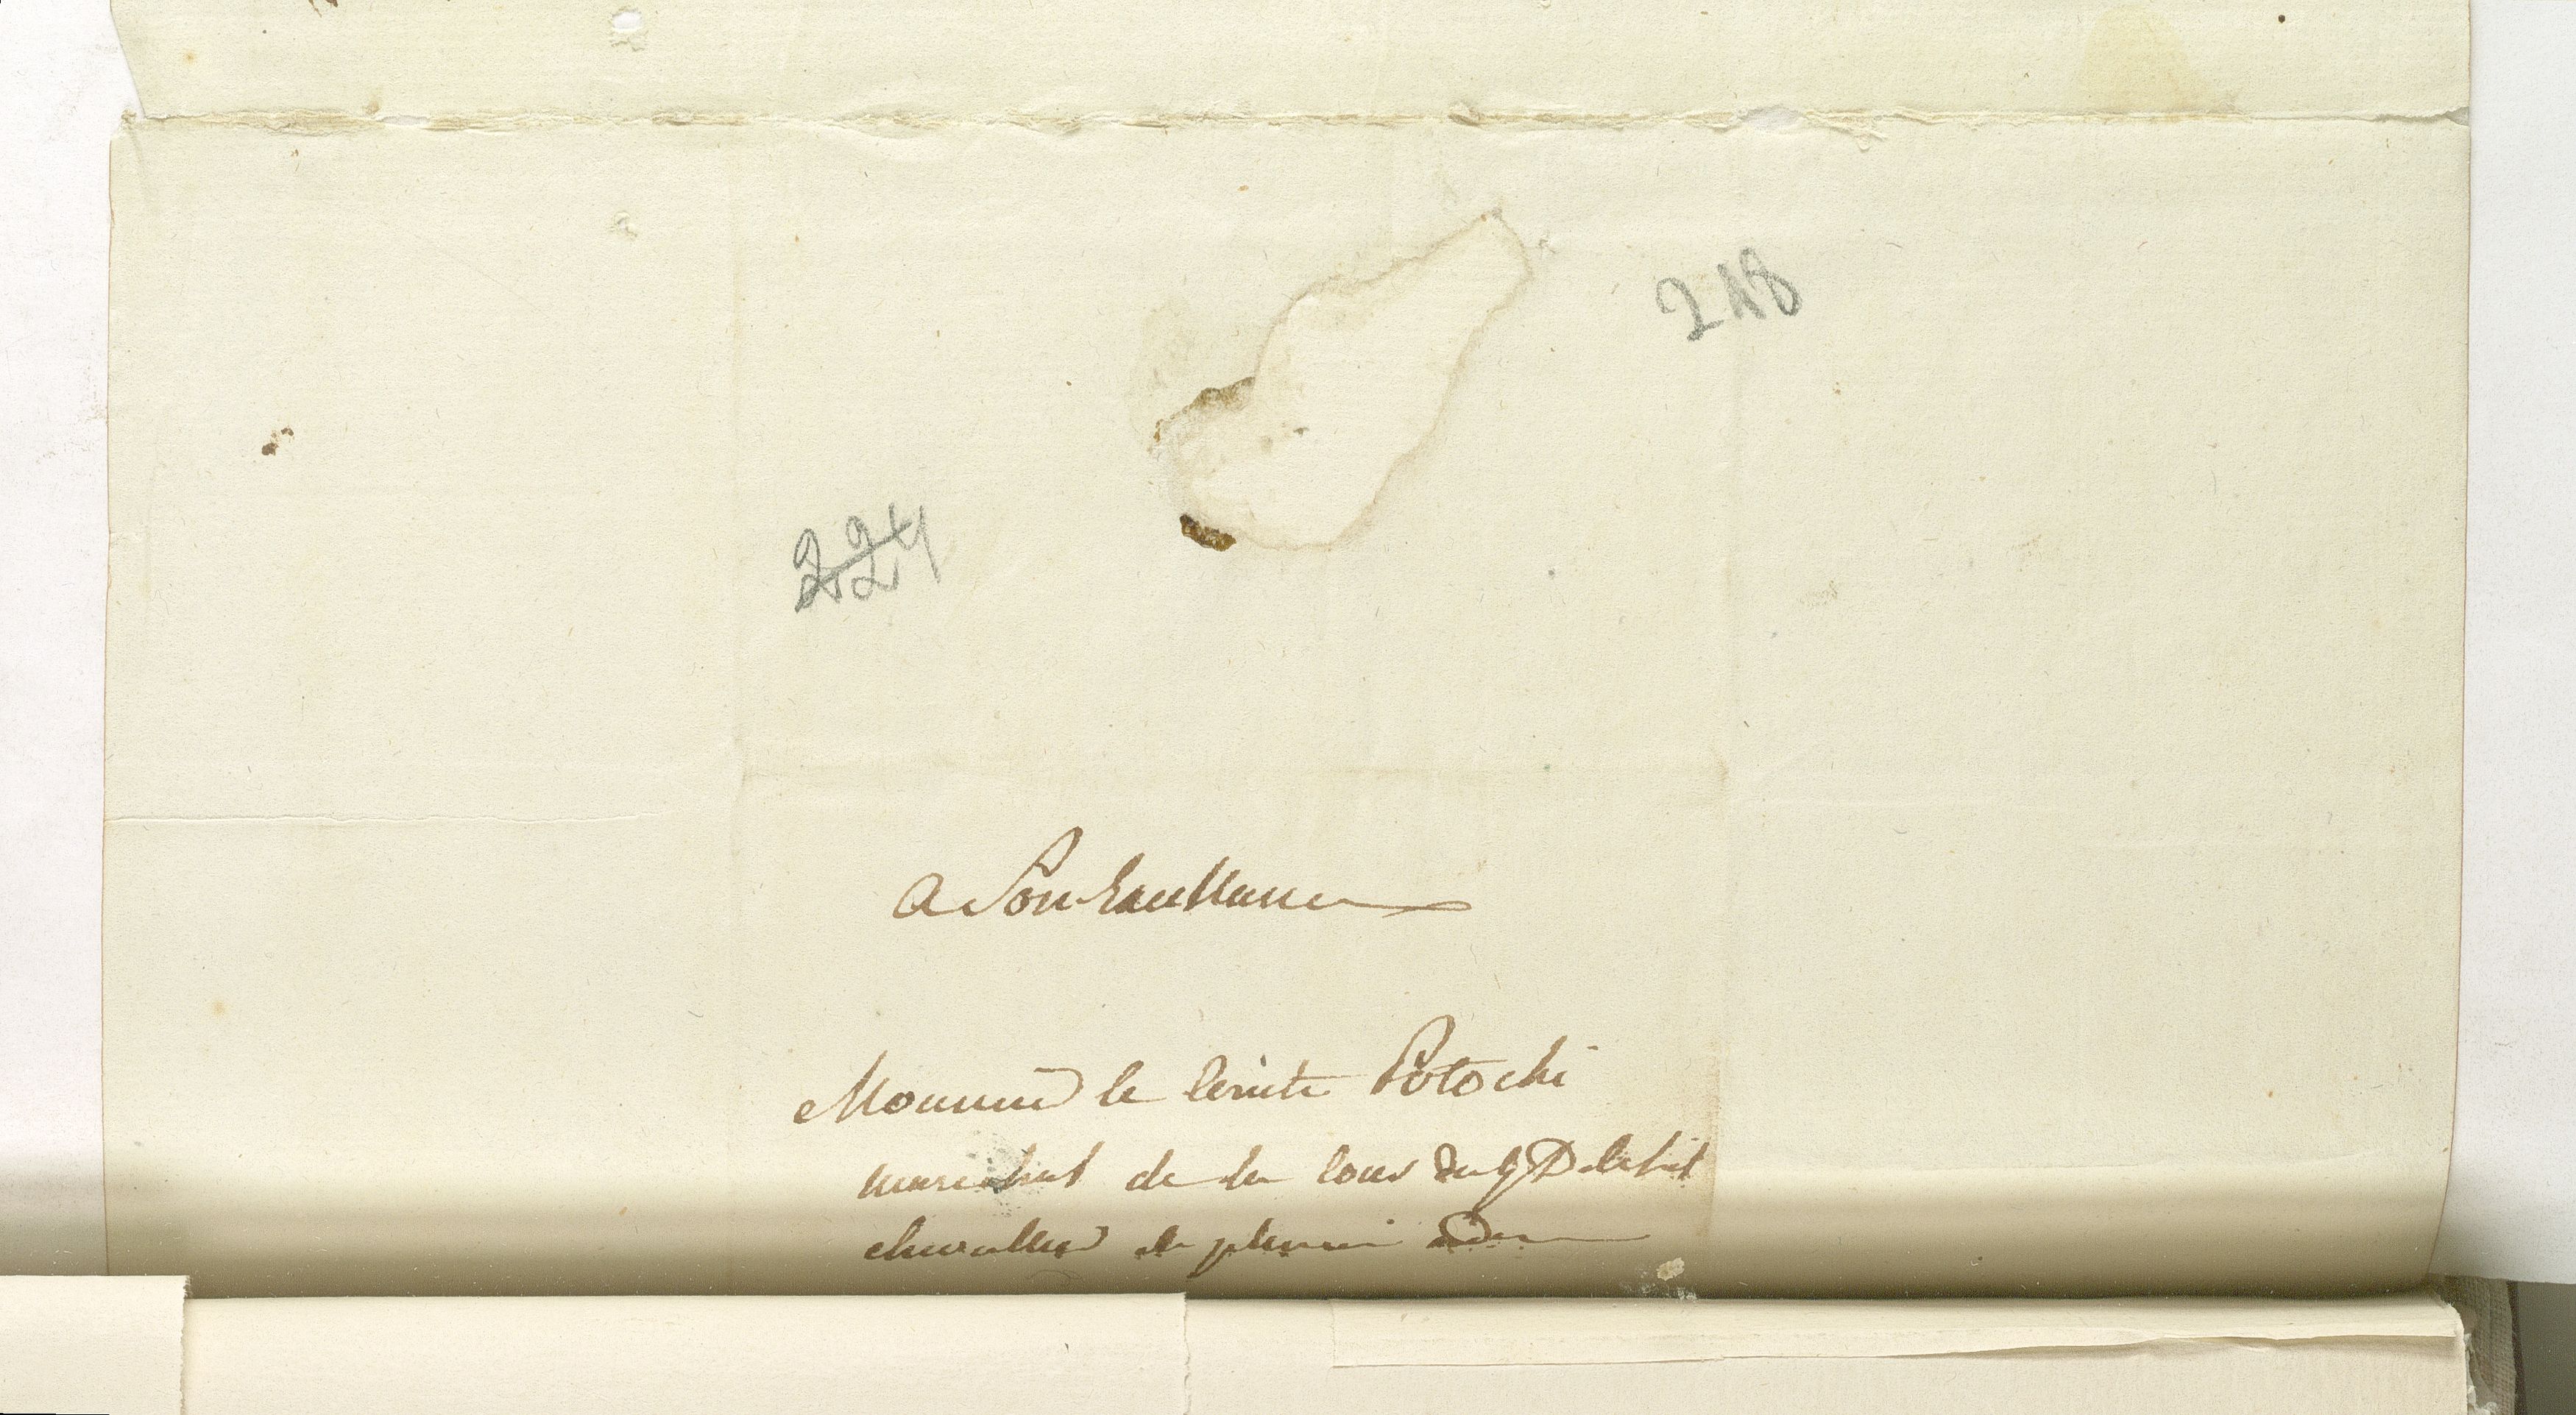 218
224
a Son Excellence
Monsieur le Comte Potocki
marechal de la Cour du g D de Lit
chevallier de plusieurs ordres